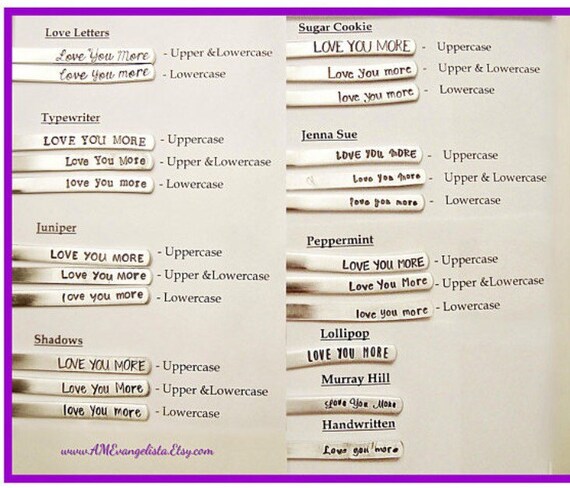 Love Letters
Love You More - Upper &Lowercase
Love You more - Lowercase
Typewriter
LOVE YOU MORE - Uppercase
Love You More - Upper &Lowercase
love you more - Lowercase
Juniper
LOVE YOU MORE - Uppercase
Love You More - Upper &Lowercase
love you more - Lowercase
Shadows
LOVE YOU MORE - Uppercase
Love You More - Upper &Lowercase
love you more - Lowercase
www.AMEvangelista.Etsy.com
Sugar Cookie
LOVE YOU MORE - Uppercase
Love You more - Upper & Lowercase
love you more - Lowercase
Jenna Sue
LOVE YOU MORE - Uppercase
Love You More - Upper & Lowercase
love you more - Lowercase
Peppermint
LOVE YOU MORE - Uppercase
Love You More - Upper &Lowercase
love you more - Lowercase
Lollipop
LOVE YOU MORE
Murray Hill
Love You More
Handwritten
Love you more